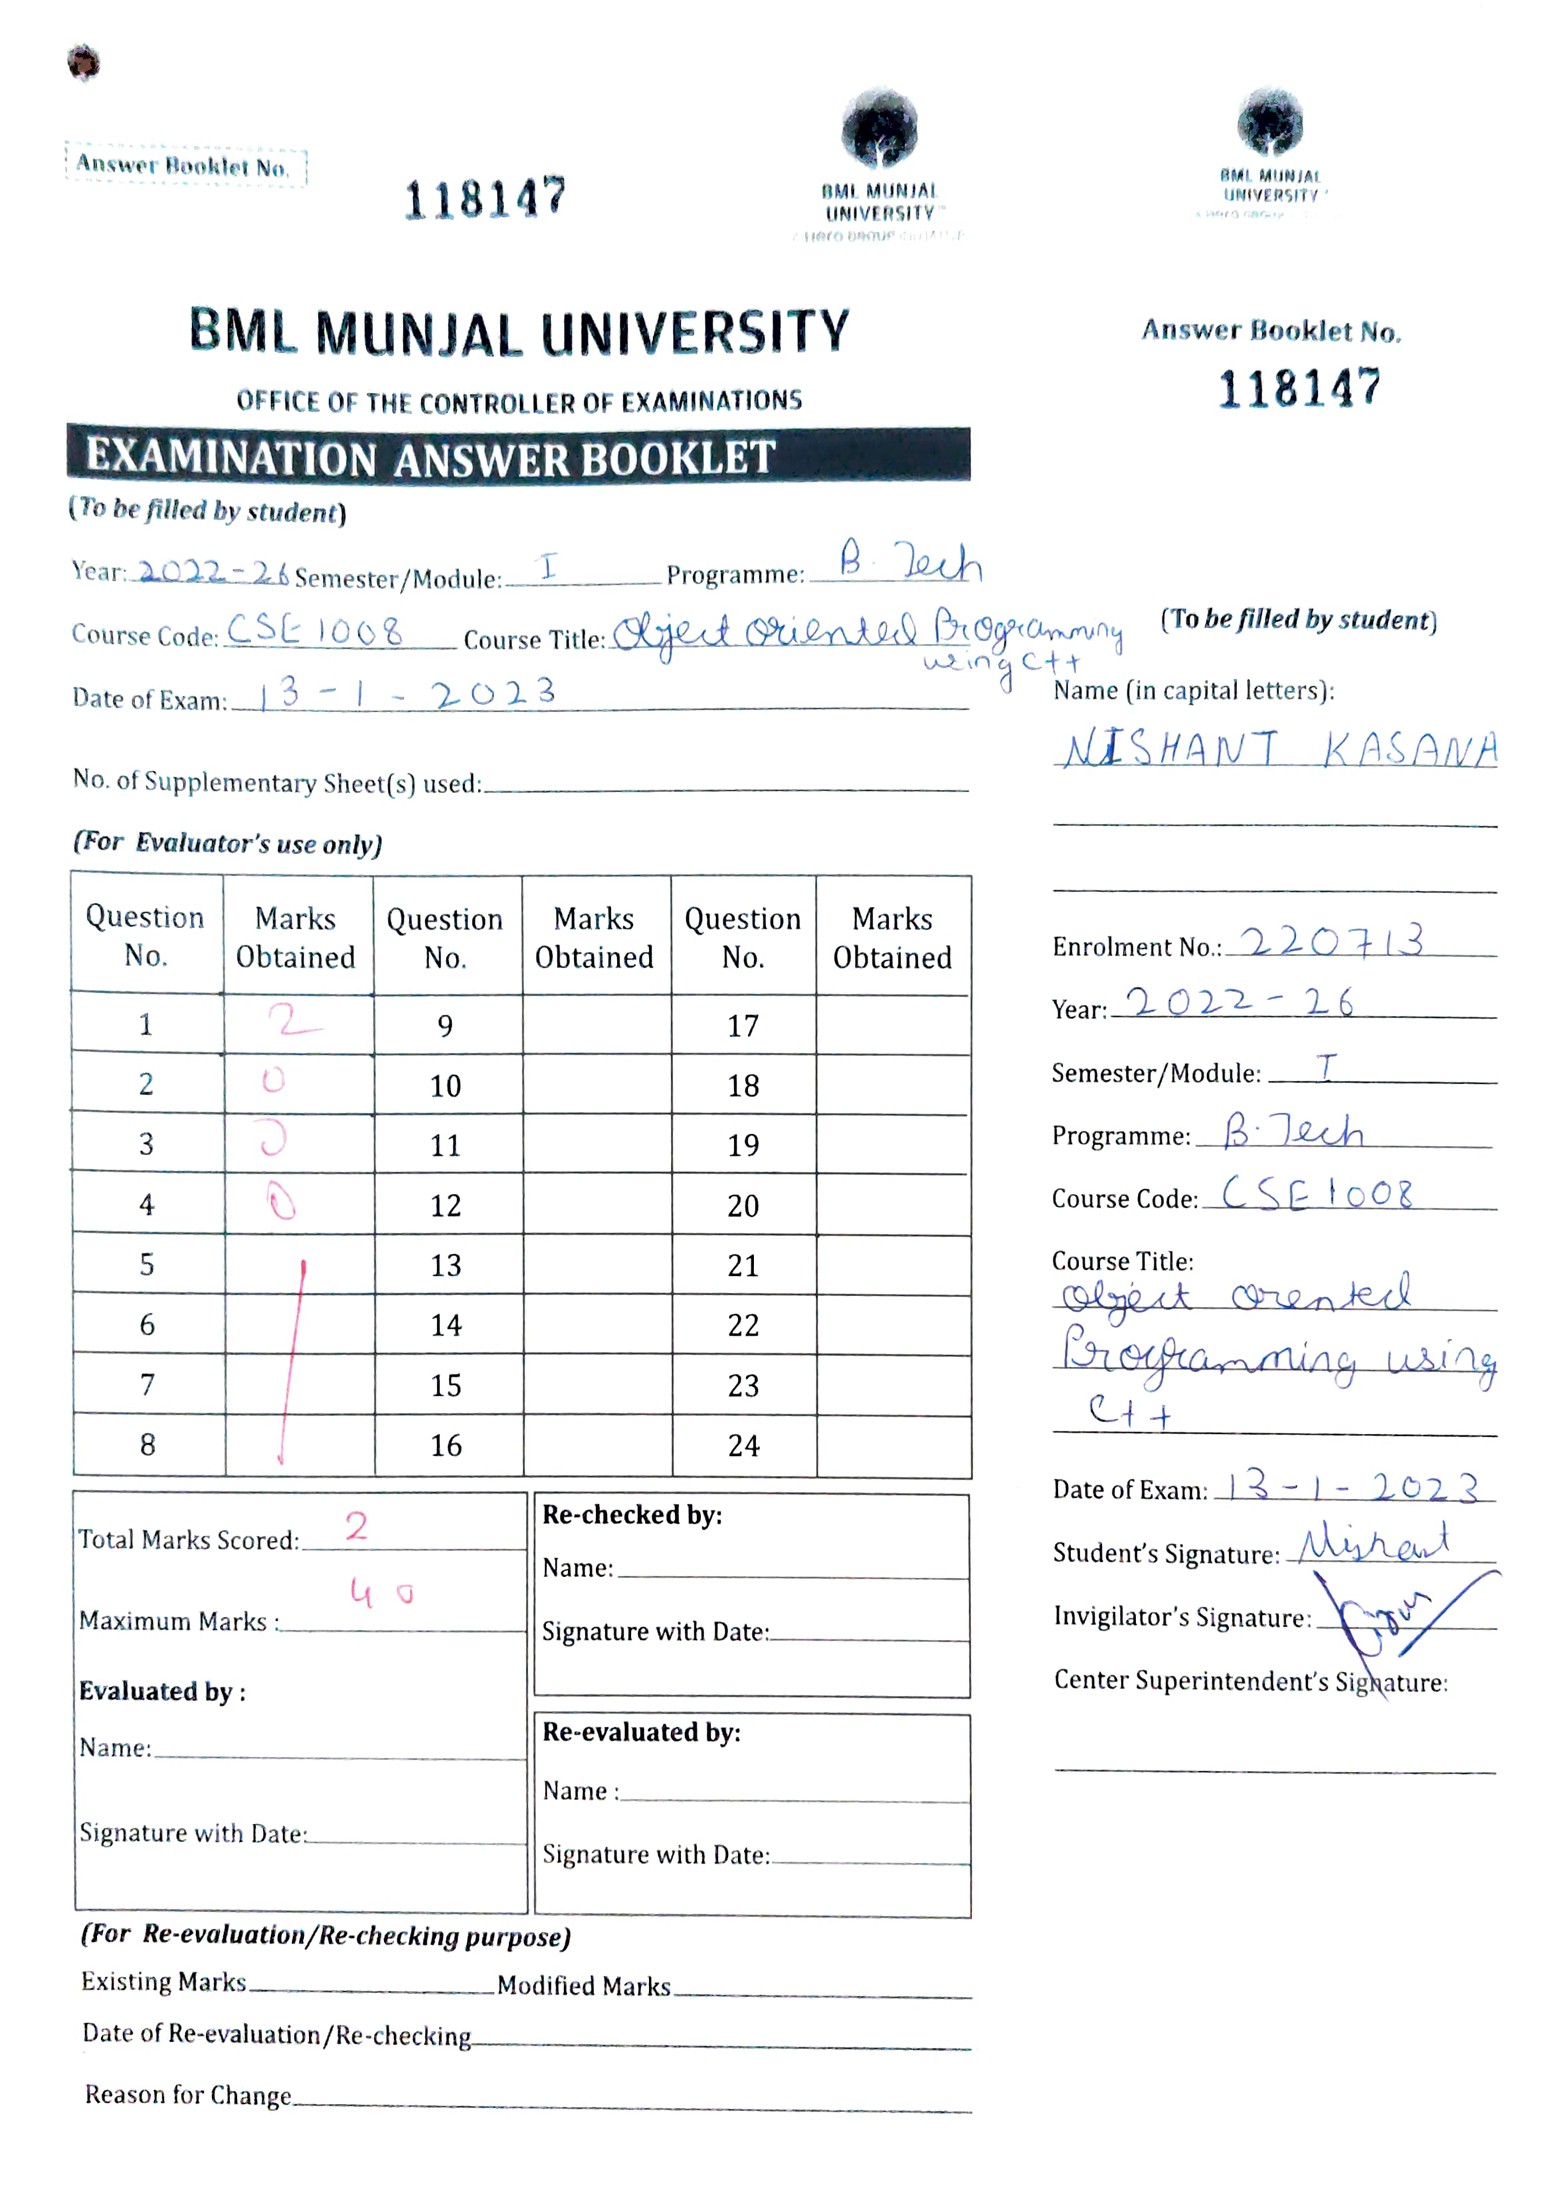 Answer Booklet No.
118147
BML MUNJAL
UNIVERSITY
BML MUNJAL
UNIVERSITY
BML MUNJAL UNIVERSITY
OFFICE OF THE CONTROLLER OF EXAMINATIONS
EXAMINATION ANSWER BOOKLET
(To be filled by student)
Year: 2022-26 Semester/Module: I Programme: B. Tech
Course Code: CSE1008 Course Title: Object oriented Programming
using C++
Date of Exam: 13-1-2023
No. of Supplementary Sheet(s) used:
(For Evaluator's use only)
Question No. Marks Obtained Question No. Marks Obtained Question No. Marks Obtained
1 2 9 17
2 0 10 18
3 0 11 19
4 0 12 20
5 13 21
6 14 22
7 15 23
8 16 24
Total Marks Scored: 2
Maximum Marks : 40
Evaluated by :
Name:
Signature with Date:
Re-checked by:
Name:
Signature with Date:
Re-evaluated by:
Name :
Signature with Date:
(For Re-evaluation/Re-checking purpose)
Existing Marks Modified Marks
Date of Re-evaluation/Re-checking
Reason for Change
Answer Booklet No.
118147
(To be filled by student)
Name (in capital letters):
NISHANT KASANA
Enrolment No.: 220713
Year: 2022-26
Semester/Module: I
Programme: B. Tech
Course Code: CSE1008
Course Title:
Object orented
Programming using
C++
Date of Exam: 13-1-2023
Student's Signature: Nishant
Invigilator's Signature:
Center Superintendent's Signature: